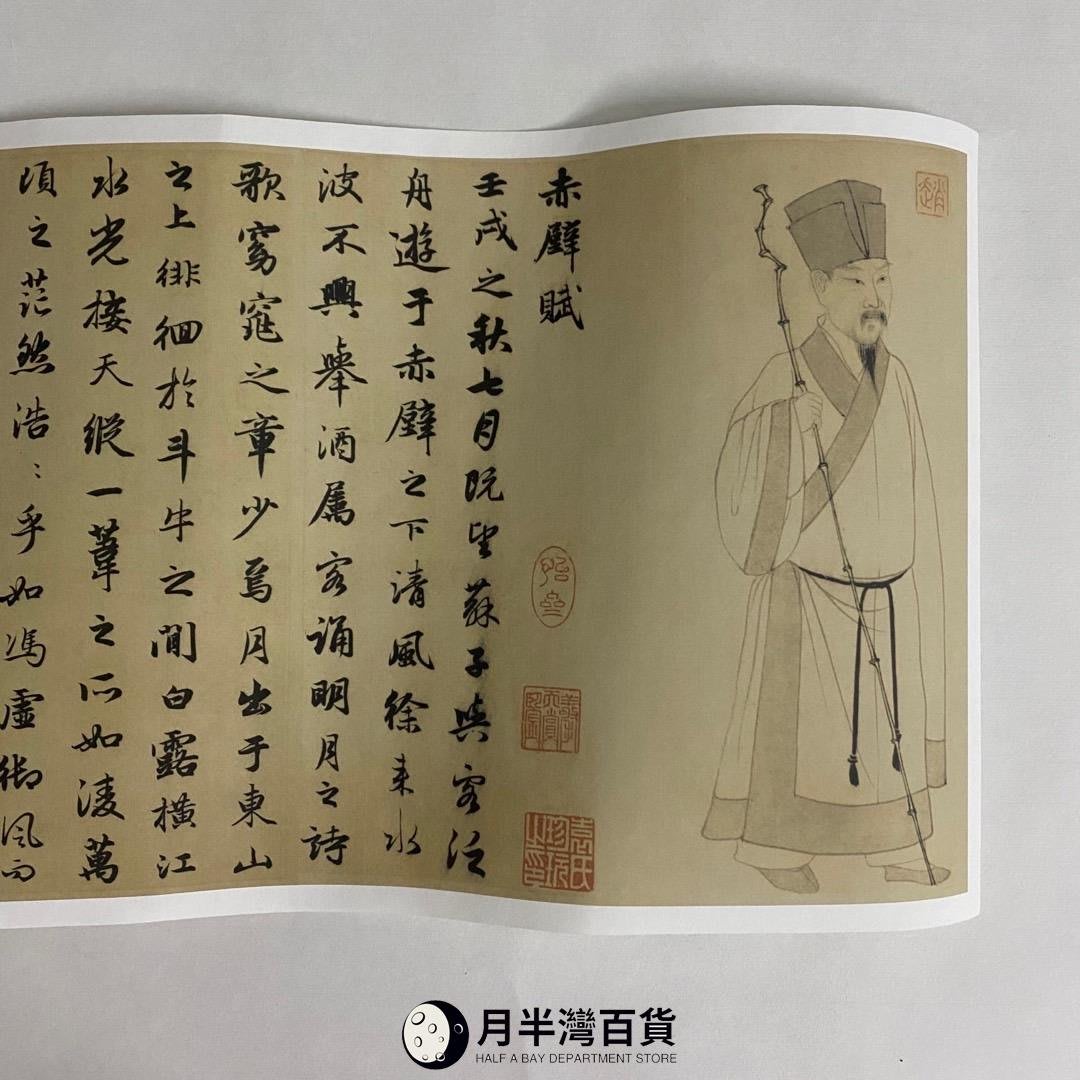 赤壁賦
壬戌之秋七月既望蘇子與客泛
舟遊于赤壁之下清風徐来水
波不興舉酒属客誦明月之詩
歌窈窕之章少焉月出于東山
之上徘徊於斗牛之間白露橫江
水光接天縱一葦之所如凌萬
頃之茫然浩〻乎如馮虛御風而
趙
月半灣百貨
HALF A BAY DEPARTMENT STORE